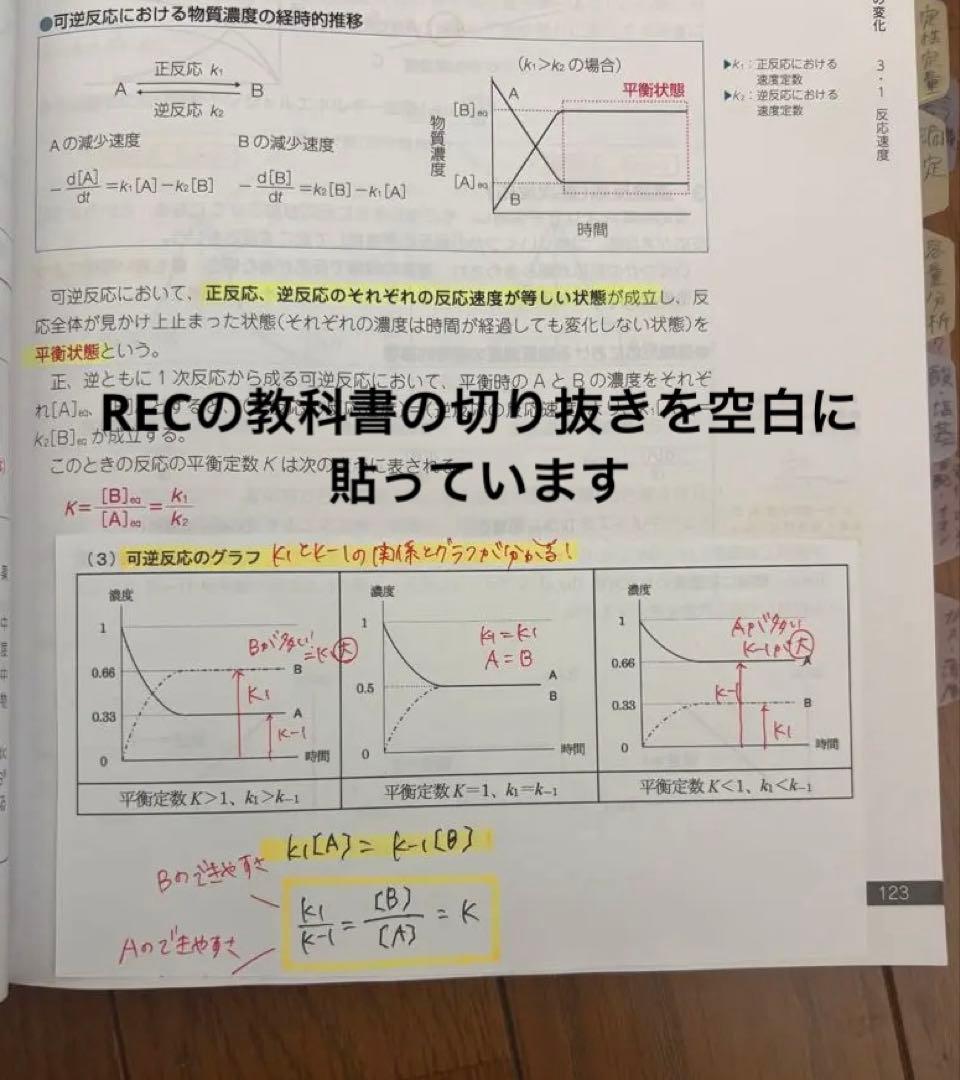 ●可逆反応における物質濃度の経時的推移
正反応 k₁
A B
逆反応 k₂
Aの減少速度 Bの減少速度
-d[A]/dt=k₁[A]-k₂[B] -d[B]/dt=k₂[B]-k₁[A]
(k₁>k₂の場合)
平衡状態
物質濃度
[B]eq
[A]eq
A
B
時間
▶k₁:正反応における
速度定数
▶k₂:逆反応における
速度定数
の変化
3・1 反応速度
定性定量
容量分析
可逆反応において、正反応、逆反応のそれぞれの反応速度が等しい状態が成立し、反
応全体が見かけ上止まった状態(それぞれの濃度は時間が経過しても変化しない状態)を
平衡状態という。
正、逆ともに1次反応から成る可逆反応において、平衡時のAとBの濃度をそれぞ
れ[A]eq
k₂[B]eqが成立する。
このときの反応の平衡定数Kは次のように表される
RECの教科書の切り抜きを空白に
貼っています
K=[B]eq/[A]eq=k₁/k₂
(3)可逆反応のグラフ k1とk-1の関係とグラフが分かる!
濃度
1
0.66
0.33
0
Bが多い
=k1 大
B
k1
A
k-1
時間
濃度
1
0.5
0
k1=k1
A=B
A
B
時間
濃度
1
0.66
0.33
0
Aが多い
k-1が大
A
k-1
B
k1
時間
平衡定数K>1、k₁>k₋₁
平衡定数K=1、k₁=k₋₁
平衡定数K<1、k₁<k₋₁
k1[A]=k-1[B]
Bのできやすさ
k1/k-1=[B]/[A]=K
Aのできやすさ
123